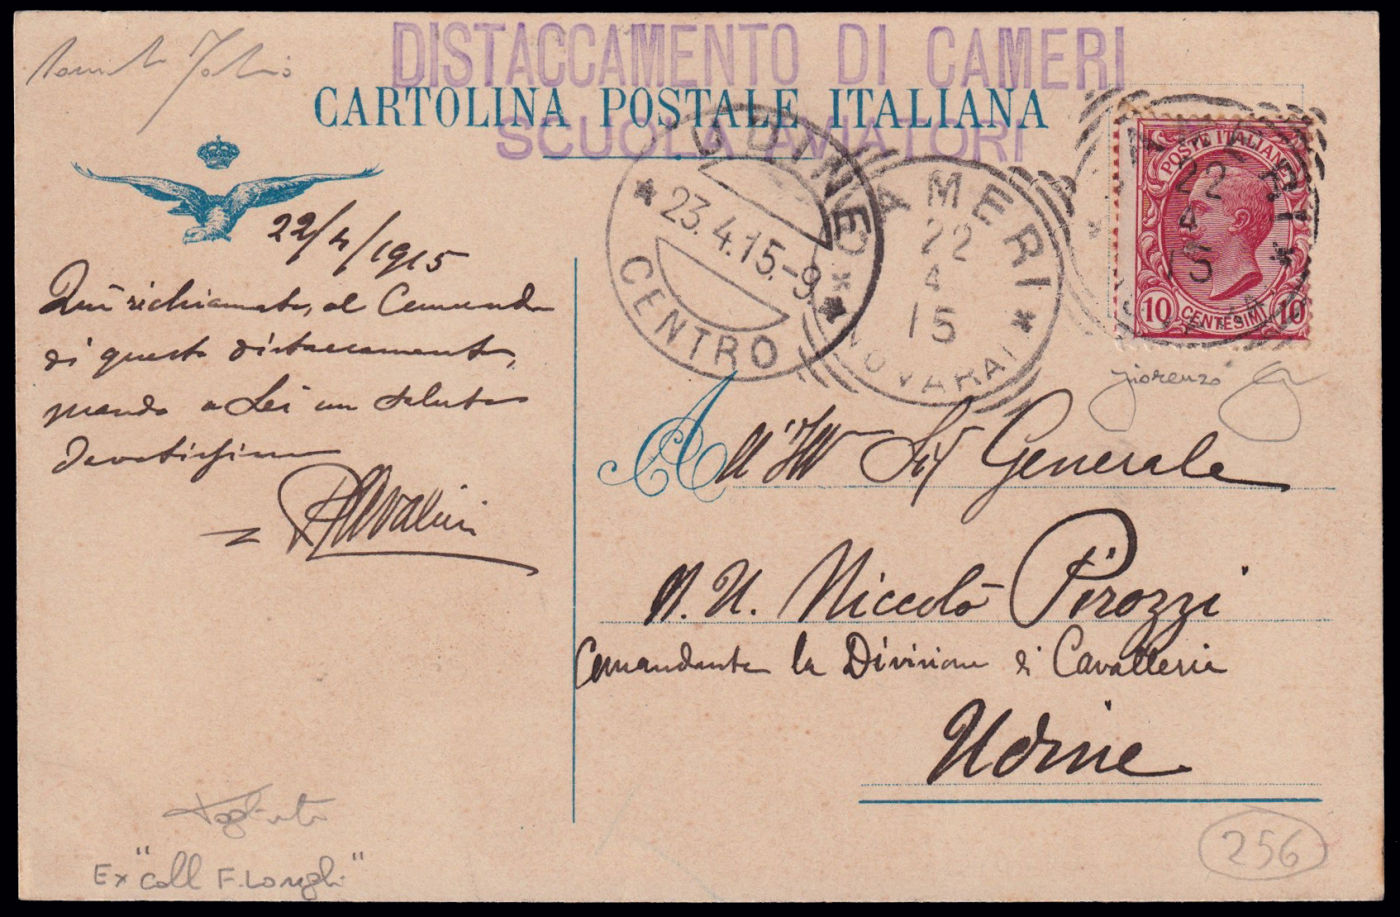 DISTACCAMENTO DI CAMERI
CARTOLINA POSTALE ITALIANA
SCUOLA AVIATORI
UDINE
* 23.4.15.-9 *
CENTRO
CAMERI
22
4
15
* (NOVARA) *
CAMERI
22
4
15
POSTE ITALIANE
10 CENTESIMI 10
22/4/1915
Qui richiamato, al Comando
di questo distaccamento,
mando a Lei un saluto
devotissimo
Cavallini
fiorenzo
All'Ill Sig Generale
N. U. Niccolò Pirozzi
Comandante la Divisione di Cavalleria
Udine
Ex "coll F. Longhi"
256